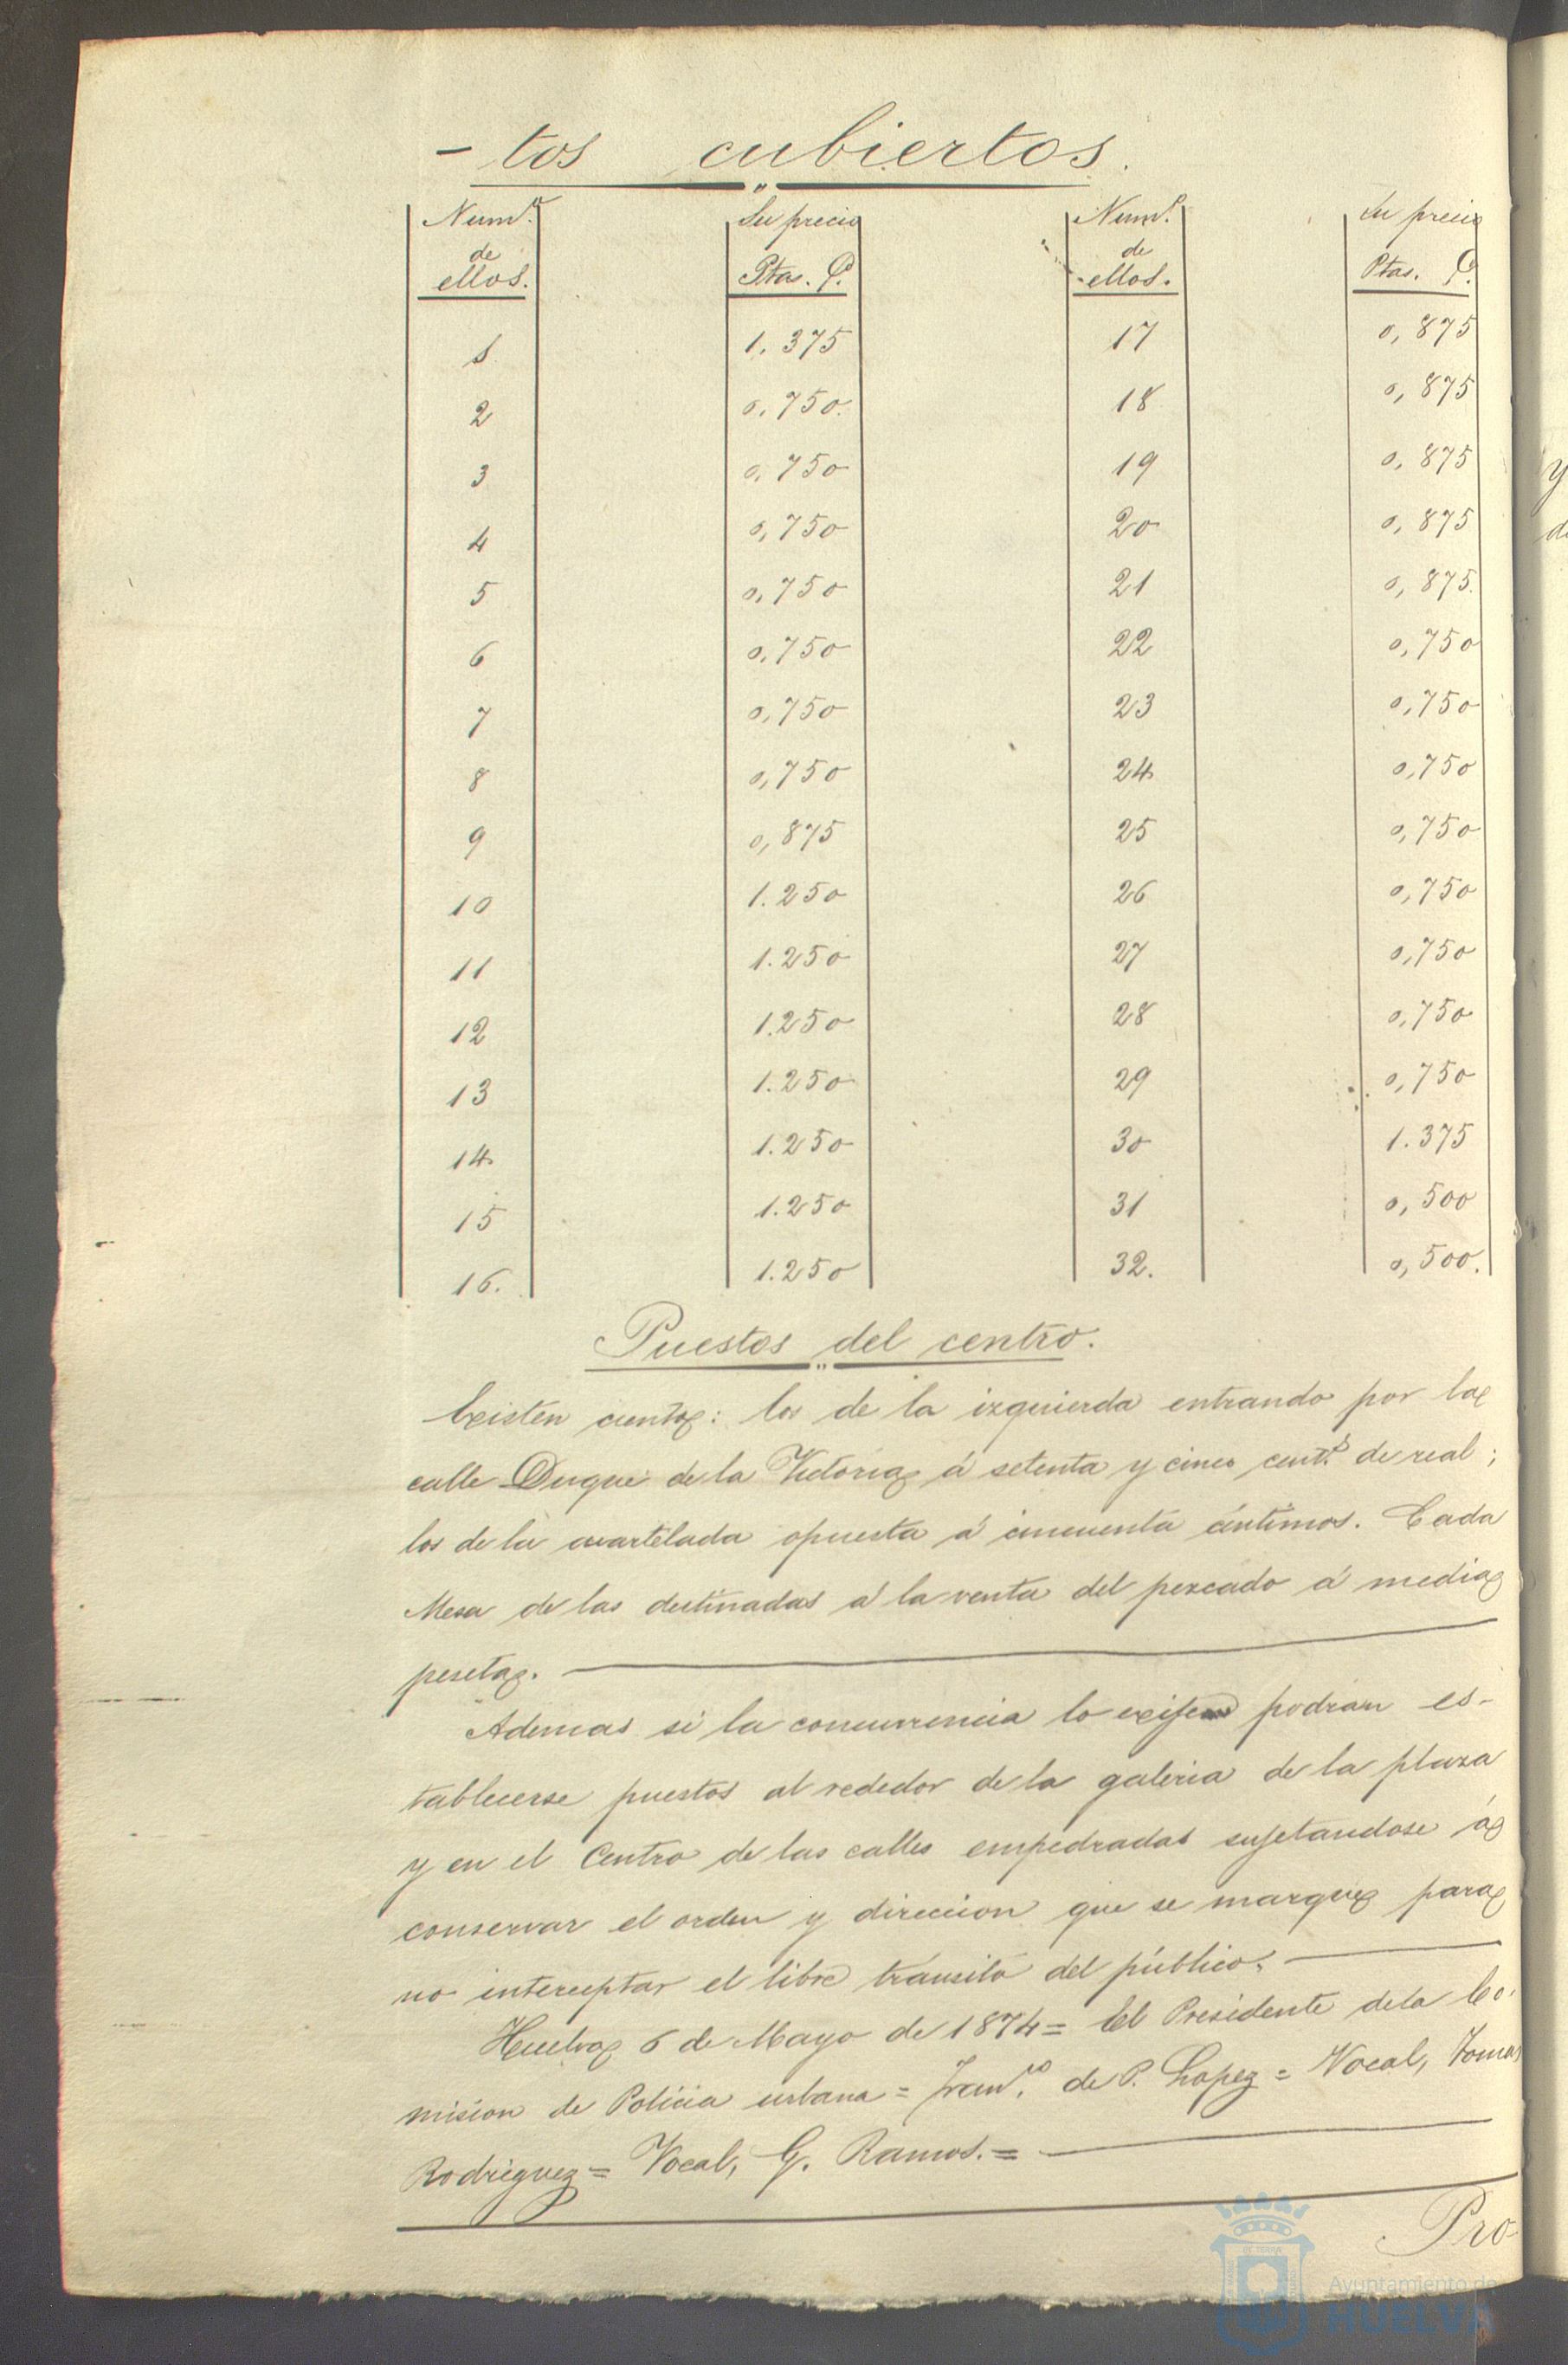 - tos cubiertos.
Num.º Su precio Num.º Su precio
de de
ellos. Ptas. C. ellos. Ptas. C.
1 1.375 17 0,875
2 0,750 18 0,875
3 0,750 19 0,875
4 0,750 20 0,875
5 0,750 21 0,875.
6 0,750 22 0,750
7 0,750 23 0,750
8 0,750 24 0,750
9 0,875 25 0,750
10 1.250 26 0,750
11 1.250 27 0,750
12 1.250 28 0,750
13 1.250 29 0,750
14 1.250 30 1.375
15 1.250 31 0,500
16. 1.250 32. 0,500.
Puestos del centro.
Existen : los de la izquierda entrando por la
calle Duque de la Victoria á setenta y cinco cent.s de real;
los de la cuartelada opuesta á cincuenta céntimos. Cada
Mesa de las destinadas á la venta del pescado á media
peseta.
Ademas si la concurrencia lo exije podrán es-
tablecerse puestos al rededor de la galeria de la plaza
y en el Centro de las calles empedradas sujetandose á
conservar el orden y direccion que se marque para
no interceptar el libre tránsito del público.
Huelva 6 de Mayo de 1874 = El Presidente de la Co-
mision de Policia urbana = Fran.co de P. Lopez = Vocal, Tomas
Rodriguez = Vocal, G. Ramos. =
Pro-
Ayuntamiento de
HUELVA